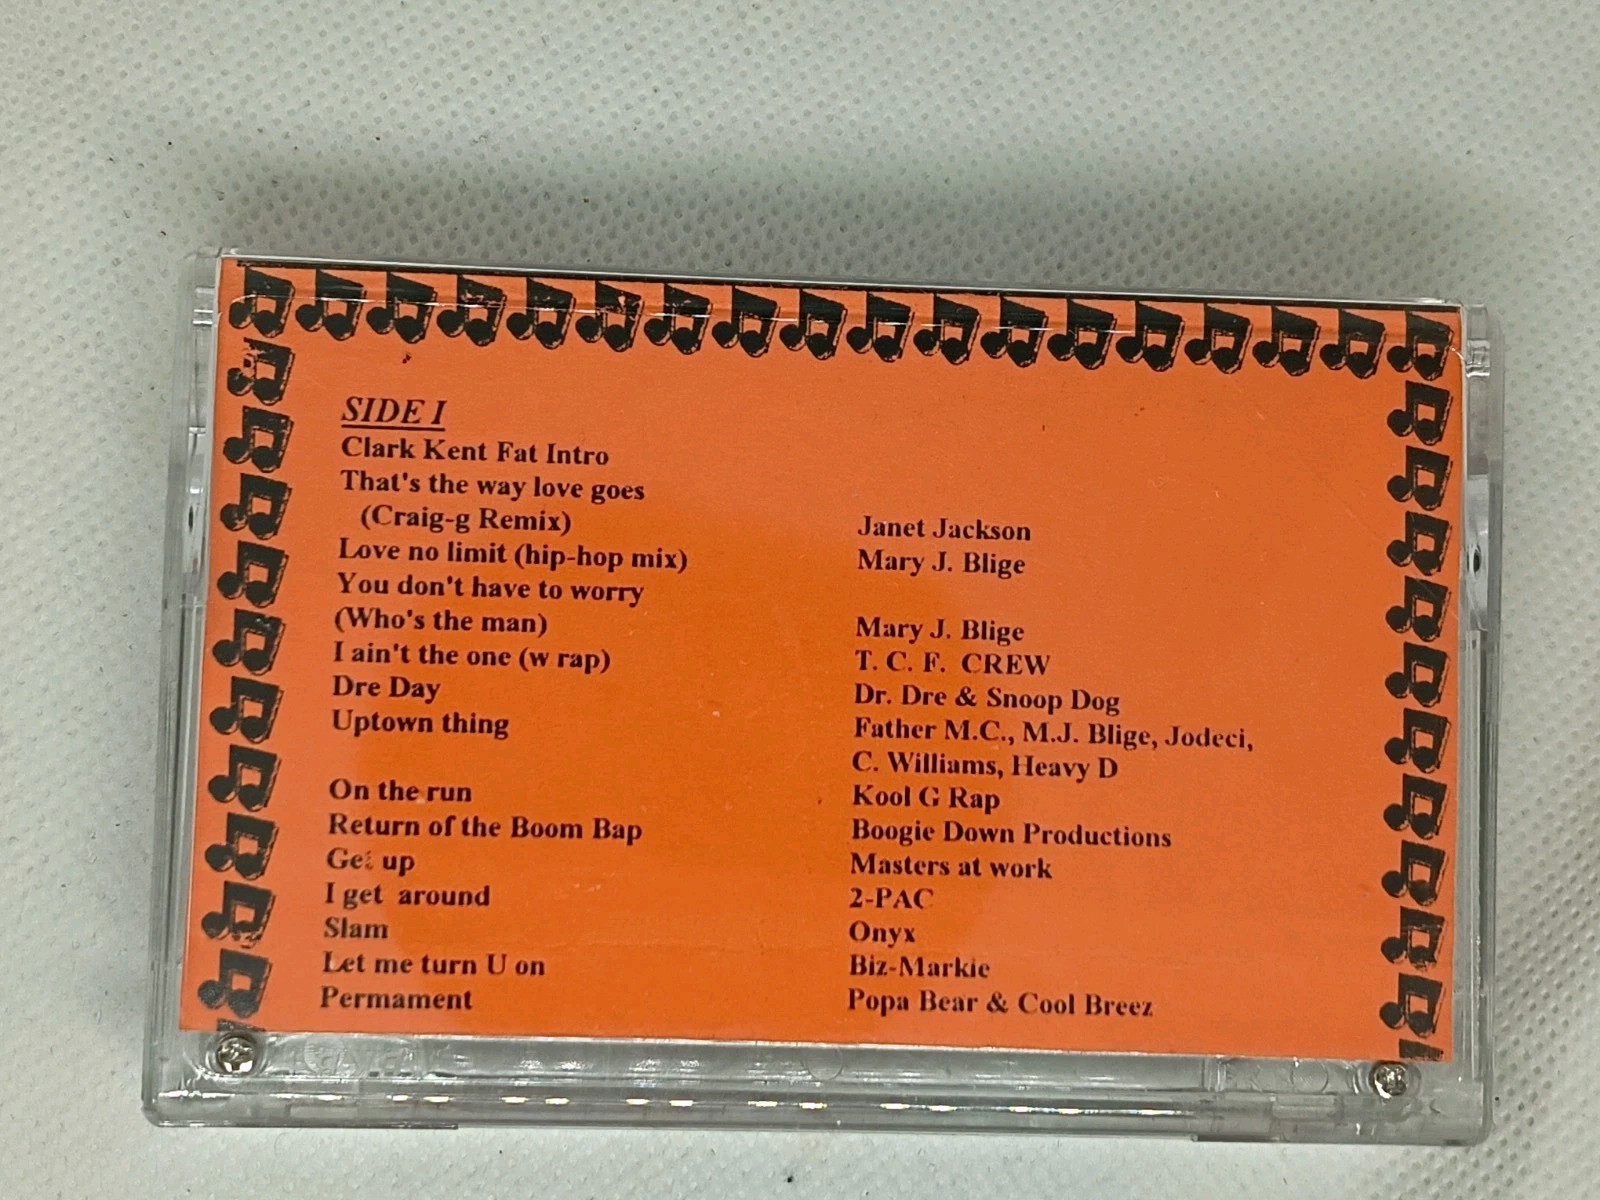 SIDE I
Clark Kent Fat Intro
That's the way love goes
(Craig-g Remix) Janet Jackson
Love no limit (hip-hop mix) Mary J. Blige
You don't have to worry
(Who's the man) Mary J. Blige
I ain't the one (w rap) T. C. F. CREW
Dre Day Dr. Dre & Snoop Dog
Uptown thing Father M.C., M.J. Blige, Jodeci,
C. Williams, Heavy D
On the run Kool G Rap
Return of the Boom Bap Boogie Down Productions
Get up Masters at work
I get around 2-PAC
Slam Onyx
Let me turn U on Biz-Markie
Permament Popa Bear & Cool Breez